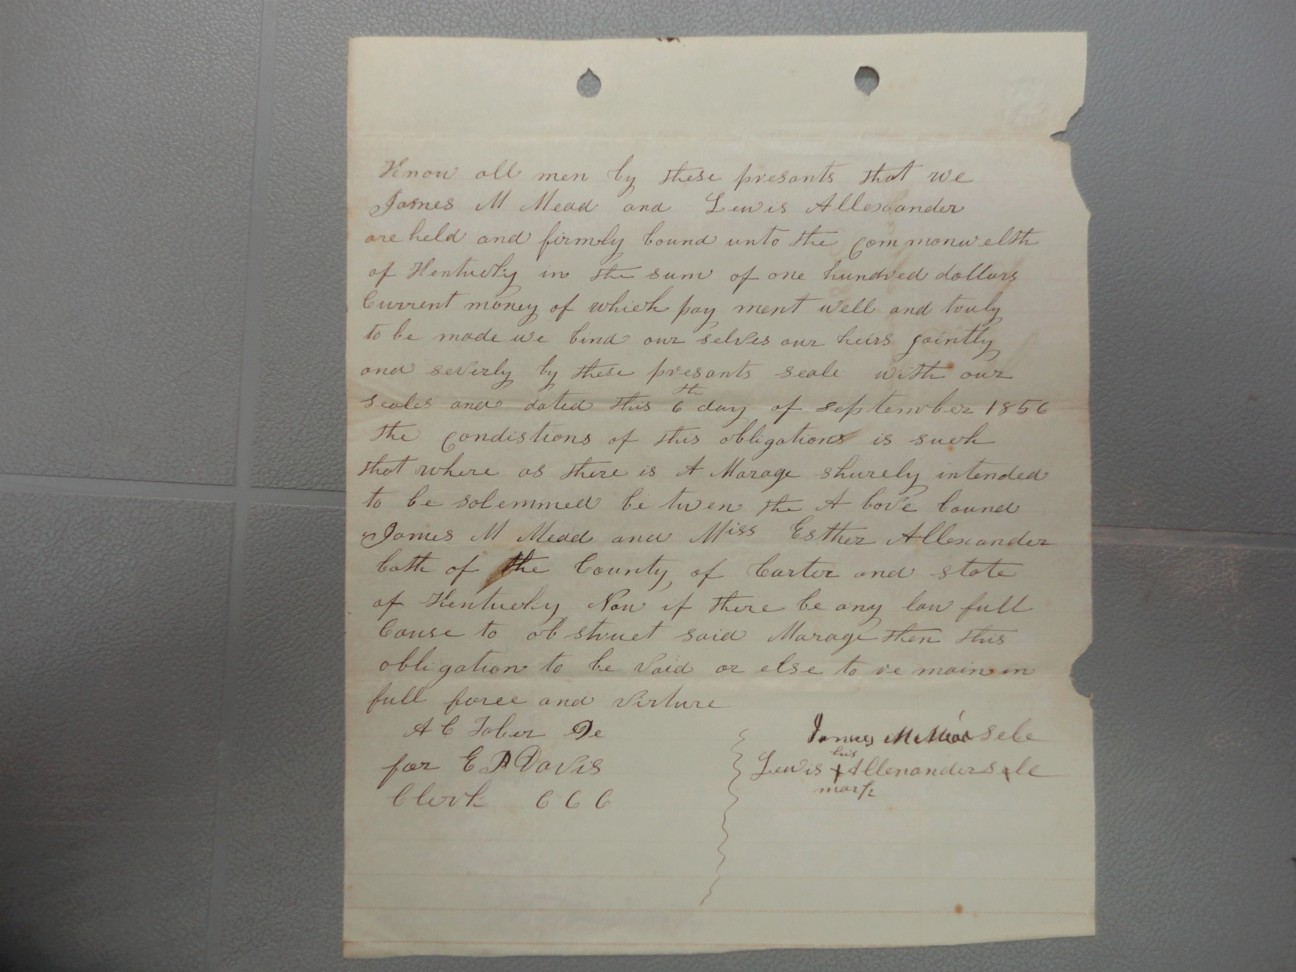 Know all men by these presants that we
James M Mead and Lewis Allexander
are held and firmly bound unto the commonwelth
of Kentucky in the sum of one hundred dollars
Current money of which pay ment well and truly
to be made we bind our selves our heirs jointly
and severly by these presants seale with our
seales and dated this 6th day of september 1856
the condistions of this obligation is such
that where as there is A Marage shurely intended
to be solemmed be twen the A bove bound
James M Mead and Miss Esther Allexander
both of the County of Carter and state
of Kentucky Now if there be any law full
Cause to ob struct said Marage then this
obligation to be void or else to re main in
full force and virture
A C Tober De
for E D Davis
Clerk C C C
James M Mead sele
Lewis his X mark Allexander sele